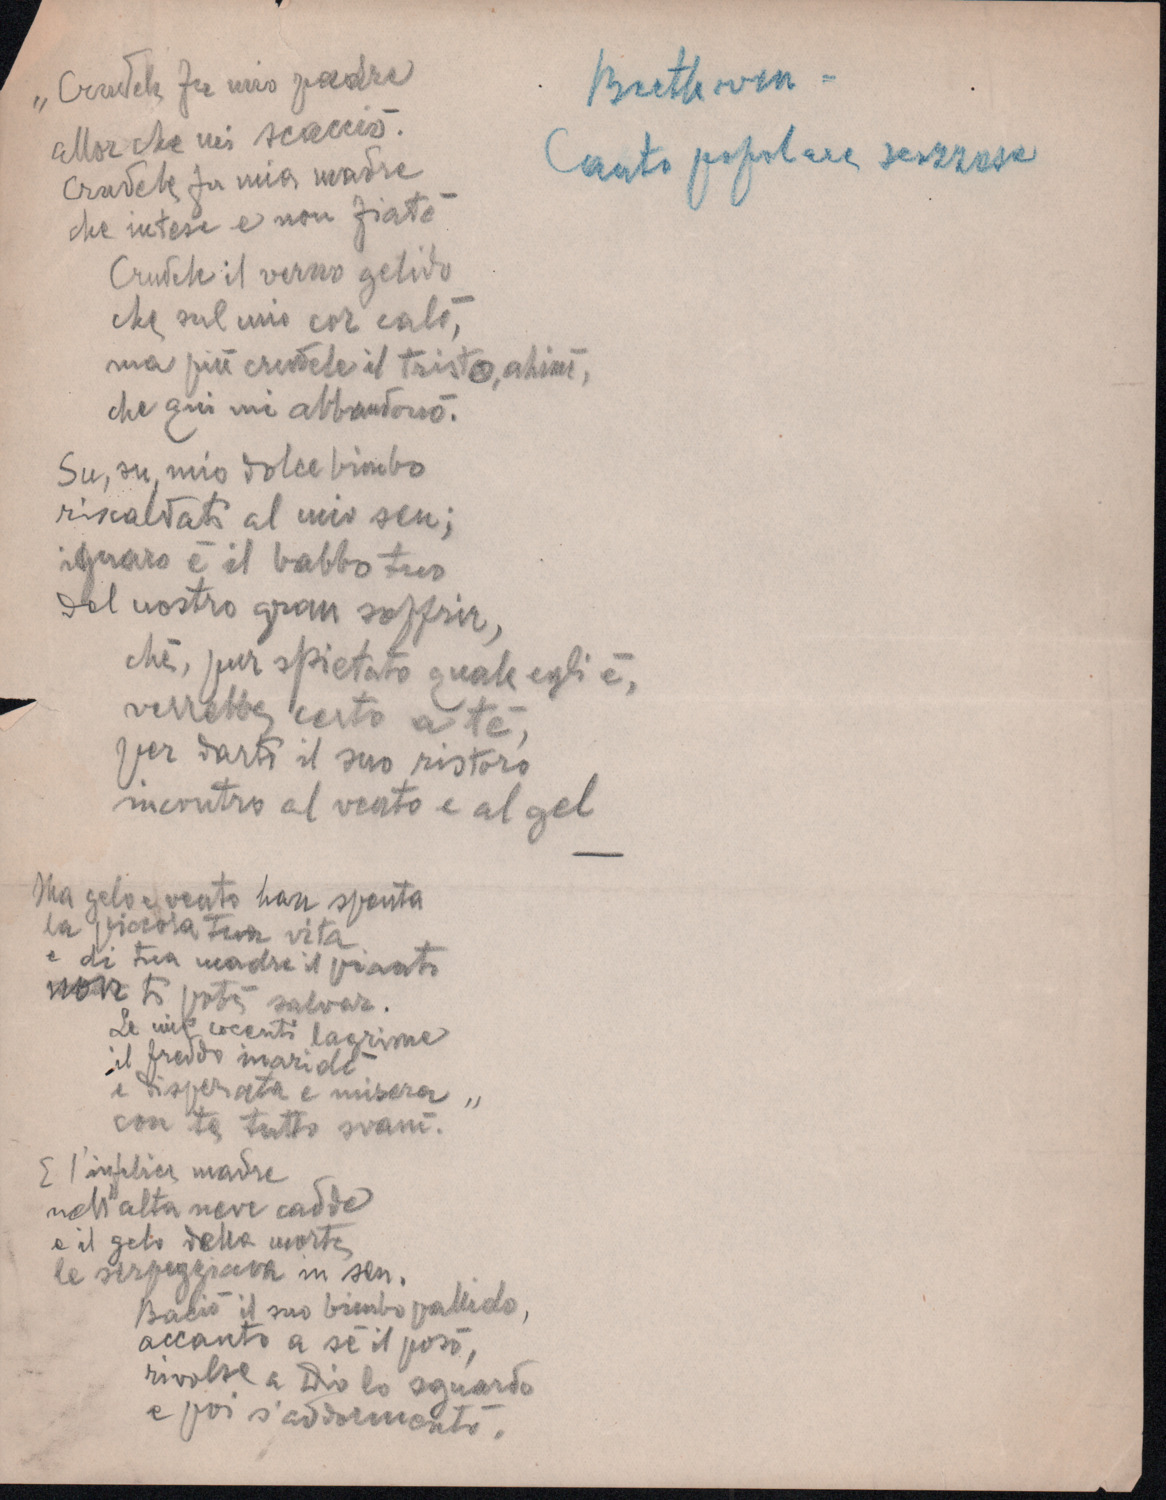 Beethoven -
Canto popolare scozzese
„Crudele fu mio padre
allor che mi scacciò.
Crudele fu mia madre
che intese e non fiatò
Crudele il verno gelido
che sul mio cor calò,
ma più crudele il tristo, ahimè,
che qui mi abbandonò.
Su, su, mio dolce bimbo
riscaldati al mio sen;
ignaro è il babbo tuo
del nostro gran soffrir,
chè, pur spietato quale egli è,
verrebbe certo a te,
per darti il suo ristoro
incontro al vento e al gel
Ma gelo e vento han spenta
la piccola tua vita
e di tua madre il pianto
non ti potè salvar.
Le mie cocenti lagrime
il freddo inaridì
e disperata e misera „
con te tutto svanì.
E l'infelice madre
nell'alta neve cadde
e il gelo della morte
le serpeggiava in sen.
Baciò il suo bimbo pallido,
accanto a sè il posò,
rivolse a Dio lo sguardo
e poi s'addormentò.